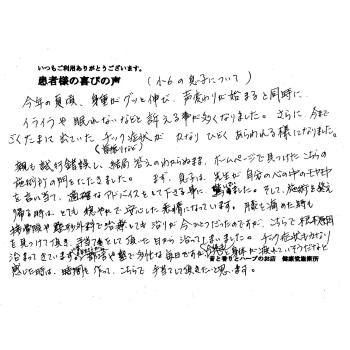 いつもご利用ありがとうございます。
患者様の喜びの声 (小6の息子について)
今年の夏頃、身長がグッと伸び、声変わりが始まると同時に、
イライラや眠れないなどと訴える事が多くなりました。さらに、今まで
ごくたまに出ていたチック症状が かなりひどくあらわれる様になりました。
親も試行錯誤し、結局答えのわからぬまま、ホームページで見つけたこちらの
施術所の門をたたきました。 まず、息子は、先生が自分の心の中のモヤモヤ
を言い当て、適確なアドバイスをして下さる事に、驚きました。そして、施術を終え
帰る時は、とても穏やかで安心した表情になっています。 膝を痛めた時も
整形外科で治療しても治りが今ひとつだったのですが、こちらで根本原因
を見つけて頂き、手当てをして頂いた日から治ってしまいました。チック症状もかなり
治まってきていますが、部活や塾で多忙な毎日ですが、身体が疲れていそうだなと
音と香りとハーブのお店 健康堂施療所
感じた時は、時間を作って、こちらで手当てして頂きたいと思います。